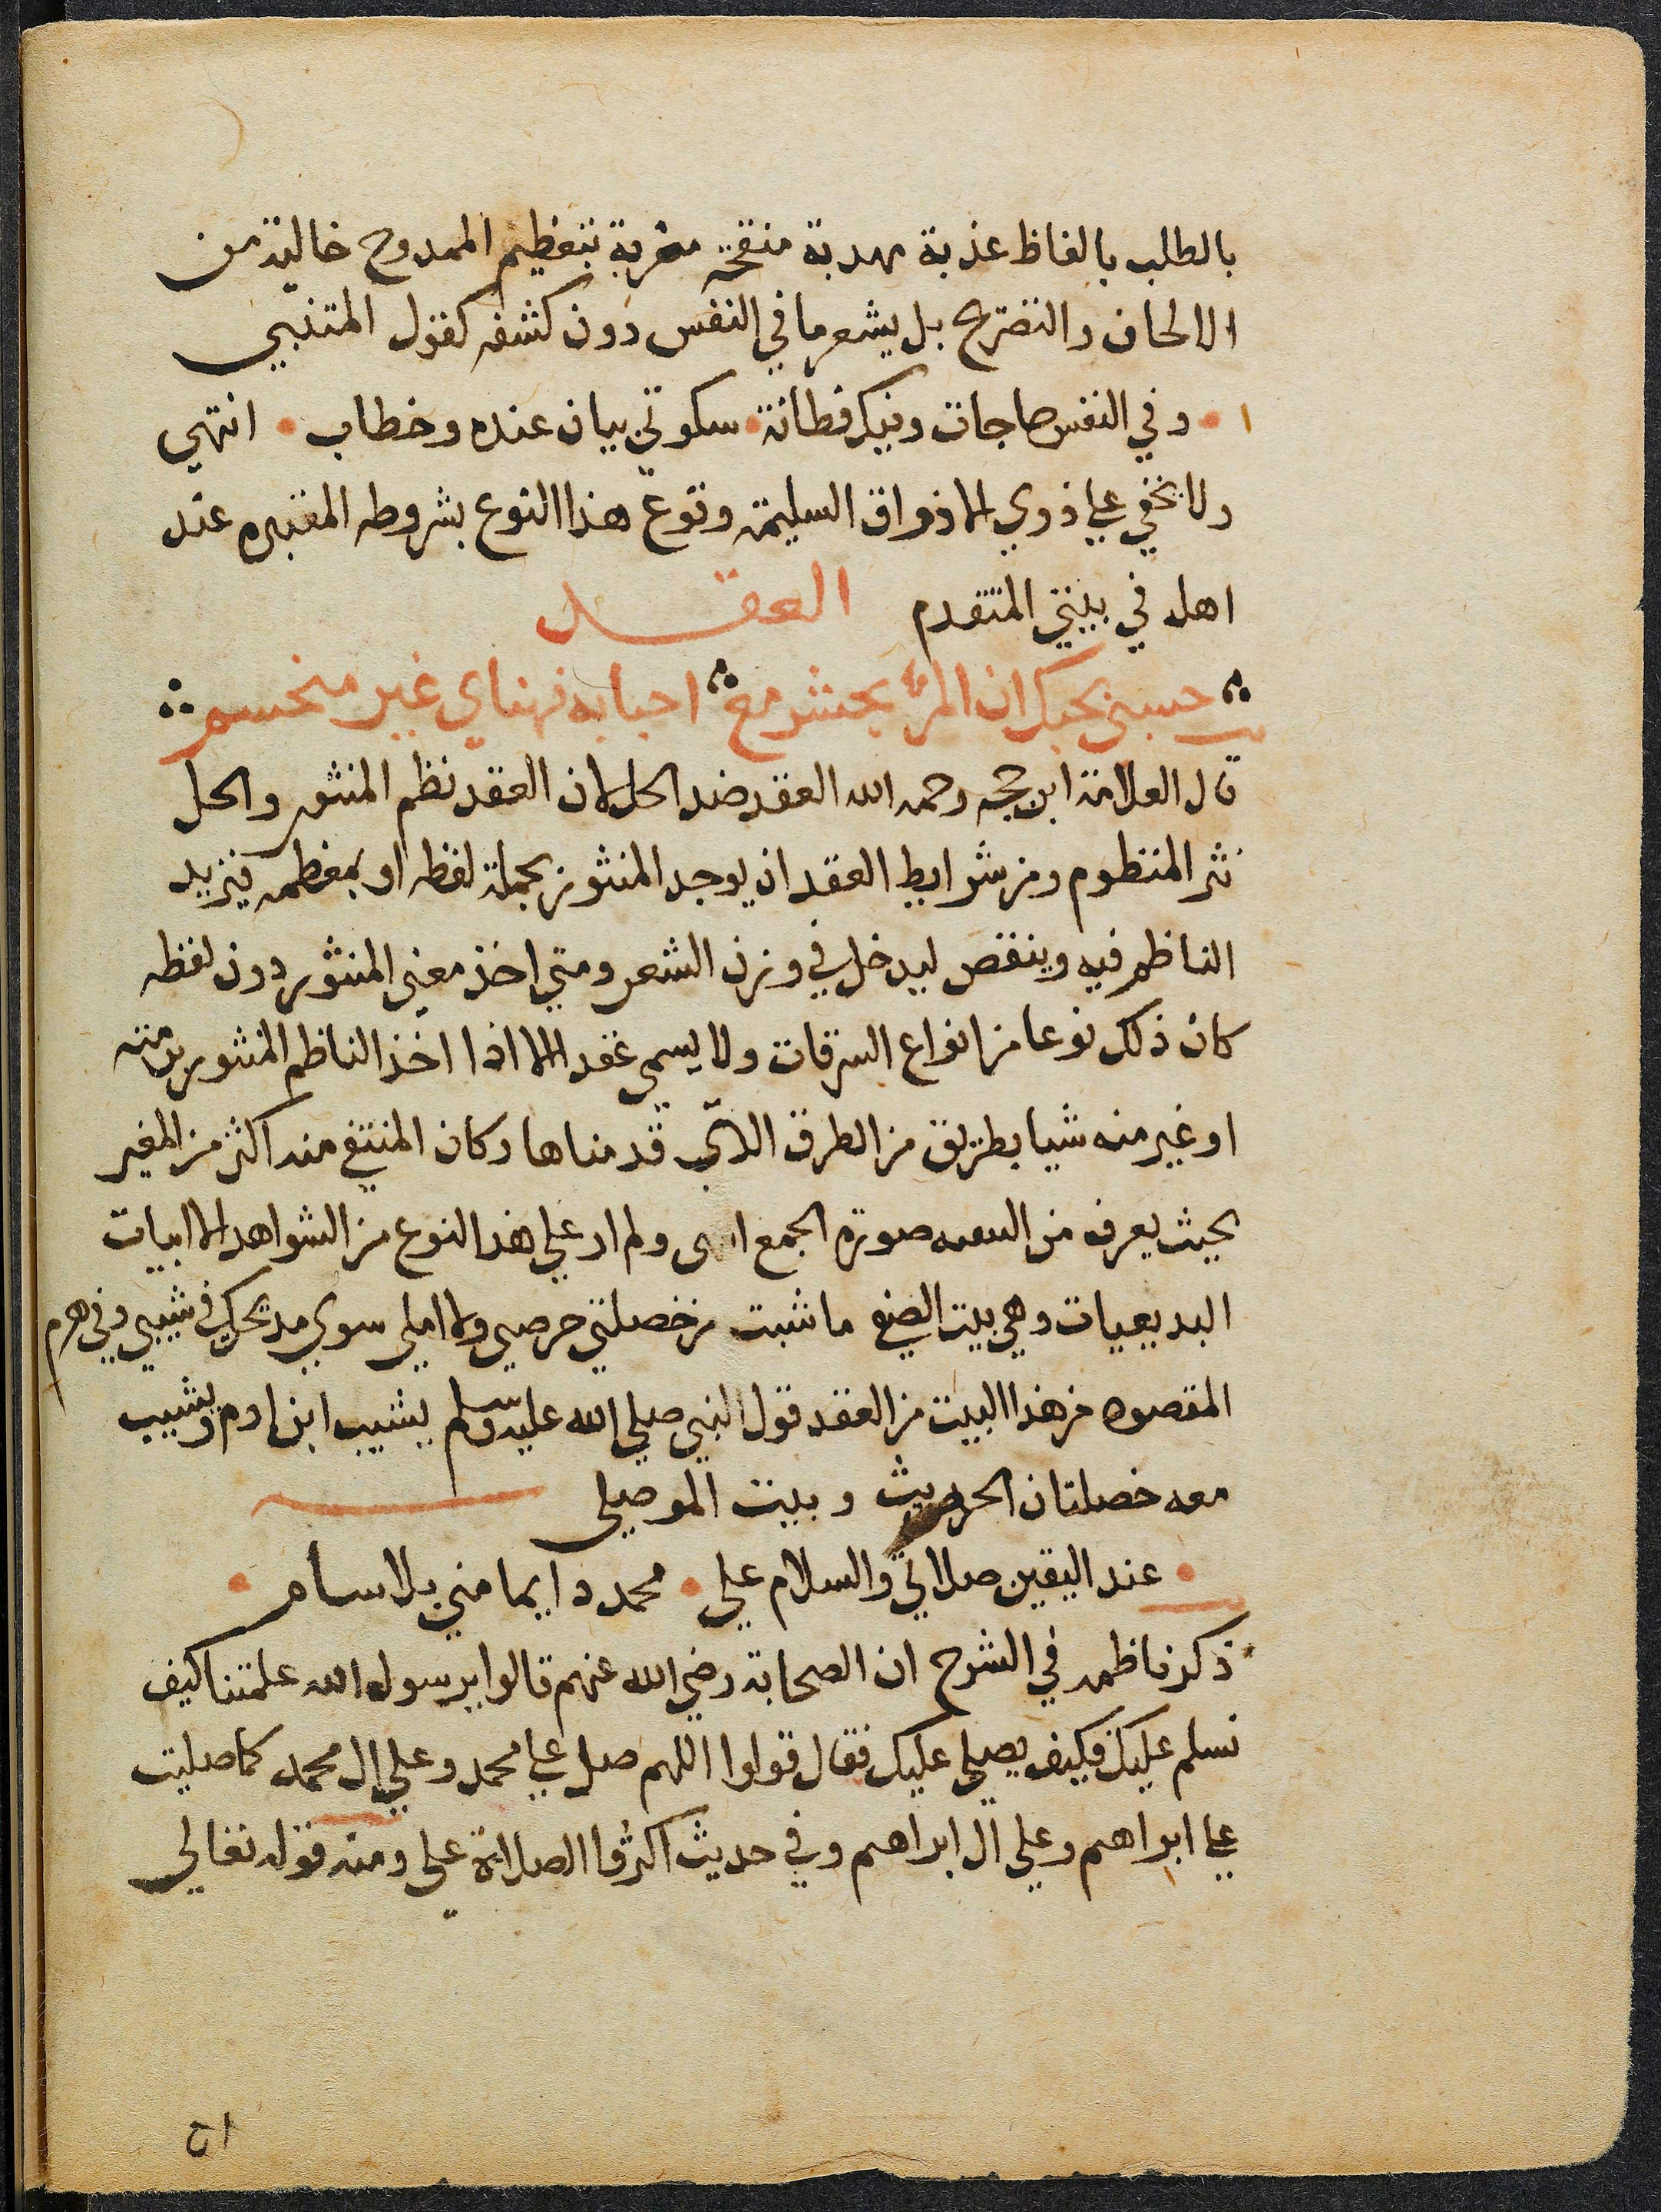 بالطلب بالفاظ عذبة مهدبة منقحة مقربة بتعظيم الممدوح خالية من
الالحاف والتصريح بل يشعر ما في النفس دون كشفه كقول المتنبي
وفي النفس حاجات وفيك فطانة سكوتي بيان عنده وخطاب انتهي
ولا يخفي علي ذوي الاذواق السليمة وقوع هذا النوع بشروطه المعتبره عند
اهله في بيتي المتقدم العقد
حسبي بحبك ان المرء يحشر مع احبابه فهناي غير منحسم
قال العلامة ابن حجه رحمه الله العقد ضد الحل لان العقد نظم المنثور والحل
نثر المنظوم ومن شرايط العقد ان يوجد المنثور بجملة لفظه او بمعظمه فيزيد
الناظم فيه وينقص ليدخل في وزن الشعر ومتي اخذ معني المنثور دون لفظه
كان ذلك نوعا من انواع السرقات ولا يسمي عقد الا اذا اخذ الناظم المنثور برمته
او غير منه شيا بطريق من الطرق التي قدمناها وكان المتبقي منه اكثر من المغير
بحيث يعرف من صورة الجمع انتهى ولم ار علي هذا النوع من الشواهد الا ابيات
البديعيات وهي بيت الصفي ما شبت من خصلتي حرصي ولا املي سوي مديحك في شيبي وفي هرم
المقصود من هذا البيت من العقد قول النبي صلي الله عليه وسلم يشيب ابن ادم ويشيب
معه خصلتان الحديث وبيت الموصلي
عند اليقين صلاتي والسلام علي محمد دايما مني بلا سام
ذكر ناظمه في الشرح ان الصحابة رضي الله عنهم قالوا يرسول الله علمتنا كيف
نسلم عليك فكيف يصلي عليك فقال قولوا اللهم صل علي محمد وعلي ال محمد كما صليت
علي ابراهم وعلي ال ابراهم وفي حديث اكثروا الصلاة علي ومنه قوله تعالي
٥١